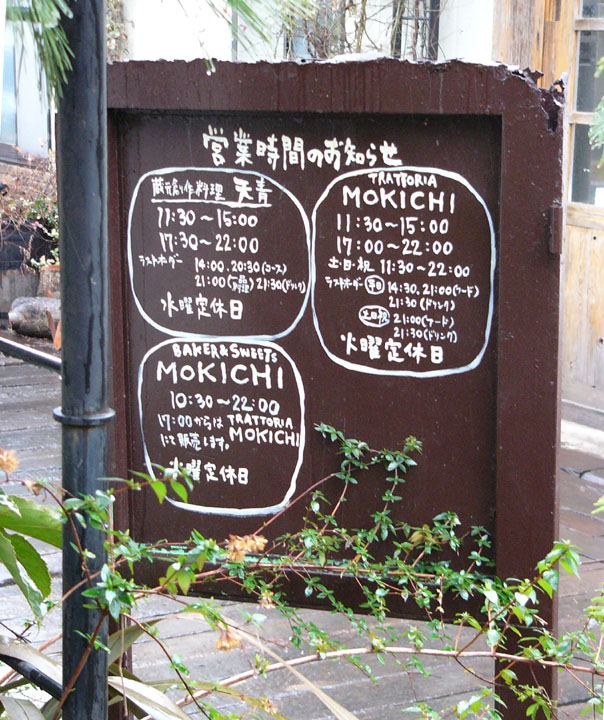 営業時間のお知らせ
蔵元創作料理 天青
11:30～15:00
17:30～22:00
ラストオーダー 14:00. 20:30(コース)
21:00( )21:30(ドリンク)
水曜定休日
TRATTORIA
MOKICHI
11:30～15:00
17:00～22:00
土・日・祝 11:30～22:00
ラストオーダー 平日 14:30. 21:00(フード)
21:30(ドリンク)
土日祝 21:00(フード)
21:30(ドリンク)
火曜定休日
BAKER&SWEETS
MOKICHI
10:30～22:00
17:00からは TRATTORIA
MOKICHI
にて販売します。
水曜定休日